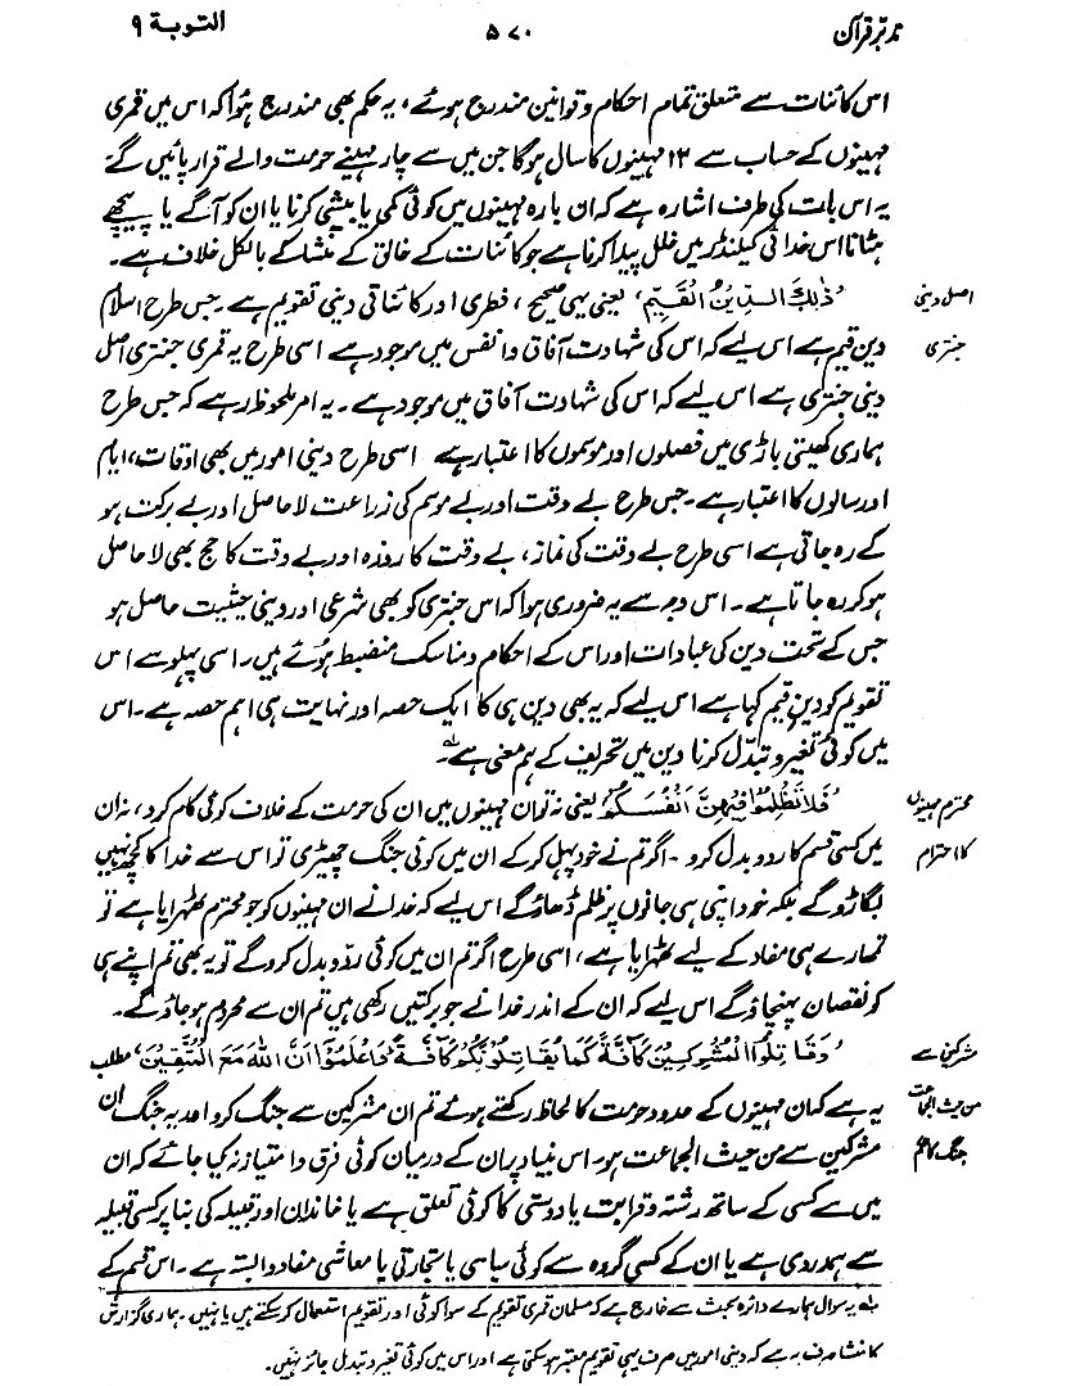 تدبّرِ قرآن
۵۷۰
التوبة ۹
اس کائنات سے متعلق تمام احکام و قوانین مندرج ہوئے، یہ حکم بھی مندرج ہُوا کہ اس میں قمری
مہینوں کے حساب سے ۱۲ مہینوں کا سال ہو گا جن میں سے چار مہینے حرمت والے قرار پائیں گے۔
یہ اس بات کی طرف اشارہ ہے کہ ان بارہ مہینوں میں کوئی کمی یا بیشی کرنا یا ان کو آگے یا پیچھے
ہٹانا اس خدائی کیلنڈر میں خلل پیدا کرنا ہے جو کائنات کے خالق کے منشا کے بالکل خلاف ہے۔
اصل دینی
’ذٰلِکَ الدِّیۡنُ الۡقَیِّمُ‘، یعنی یہی صحیح، فطری اور کائناتی دینی تقویم ہے۔ جس طرح اسلام
جنتری
دینِ قیم ہے اس لیے کہ اس کی شہادت آفاق و انفس میں موجود ہے اسی طرح یہ قمری جنتری اصل
دینی جنتری ہے اس لیے کہ اس کی شہادت آفاق میں موجود ہے۔ یہ امر ملحوظ رہے کہ جس طرح
ہماری کھیتی باڑی میں فصلوں اور موسموں کا اعتبار ہے اسی طرح دینی امور میں بھی اوقات، ایام
اور سالوں کا اعتبار ہے۔ جس طرح بے وقت اور بے موسم کی زراعت لاحاصل اور بے برکت ہو
کے رہ جاتی ہے اسی طرح بے وقت کی نماز، بے وقت کا روزہ اور بے وقت کا حج بھی لاحاصل
ہو کر رہ جاتا ہے۔ اس وجہ سے یہ ضروری ہوا کہ اس جنتری کو بھی شرعی اور دینی حیثیت حاصل ہو
جس کے تحت دین کی عبادات اور اس کے احکام و مناسک منضبط ہوئے ہیں۔ اسی پہلو سے اس
تقویم کو دینِ قیّم کہا ہے اس لیے کہ یہ بھی دین ہی کا ایک حصہ اور نہایت ہی اہم حصہ ہے۔ اس
میں کوئی تغیر و تبدّل کرنا دین میں تحریف کے ہم معنی ہے۔ لہ
محترم مہینوں
’فَلَا تَظۡلِمُوۡا فِیۡہِنَّ اَنۡفُسَکُمۡ‘ یعنی نہ تو ان مہینوں میں ان کی حرمت کے خلاف کوئی کام کرو، نہ ان
کا احترام
میں کسی قسم کا ردوبدل کرو۔ اگر تم نے خود پہل کر کے ان میں کوئی جنگ چھیڑی تو اس سے خدا کا کچھ نہیں
بگاڑو گے بلکہ خود اپنی ہی جانوں پر ظلم ڈھاؤ گے اس لیے کہ خدا نے ان مہینوں کو جو محترم ٹھہرایا ہے تو
تمہارے ہی مفاد کے لیے ٹھہرایا ہے، اسی طرح اگر تم ان میں کوئی ردّ و بدل کرو گے تو یہ بھی تم اپنے ہی
کو نقصان پہنچاؤ گے اس لیے کہ ان کے اندر خدا نے جو برکتیں رکھی ہیں تم ان سے محروم ہو جاؤ گے۔
مشرکین سے
’وَقَاتِلُوا الۡمُشۡرِکِیۡنَ کَآفَّۃً کَمَا یُقَاتِلُوۡنَکُمۡ کَآفَّۃً وَاعۡلَمُوۡٓا اَنَّ اللّٰہَ مَعَ الۡمُتَّقِیۡنَ‘، مطلب
من حیث الجماعت
یہ ہے کہ ان مہینوں کے حدودِ حرمت کا لحاظ رکھتے ہوئے تم ان مشرکین سے جنگ کرو اور یہ جنگ ان
جنگ کا حکم
مشرکین سے من حیث الجماعت ہو۔ اس بنیاد پر ان کے درمیان کوئی فرق و امتیاز نہ کیا جائے کہ ان
میں سے کسی کے ساتھ رشتہ و قرابت یا دوستی کا کوئی تعلق ہے یا خاندان اور قبیلہ کی بنا پر کسی قبیلہ
سے ہمدردی ہے یا ان کے کسی گروہ سے کوئی سیاسی یا تجارتی یا معاشی مفاد وابستہ ہے۔ اس قسم کے
لہ یہ سوال ہمارے دائرہ بحث سے خارج ہے کہ مسلمان قمری تقویم کے سوا کوئی اور تقویم استعمال کر سکتے ہیں یا نہیں۔ ہماری گزارش
کا منشا صرف یہ ہے کہ دینی امور میں صرف یہی تقویم معتبر ہو سکتی ہے اور اس میں کوئی تغیر و تبدل جائز نہیں۔